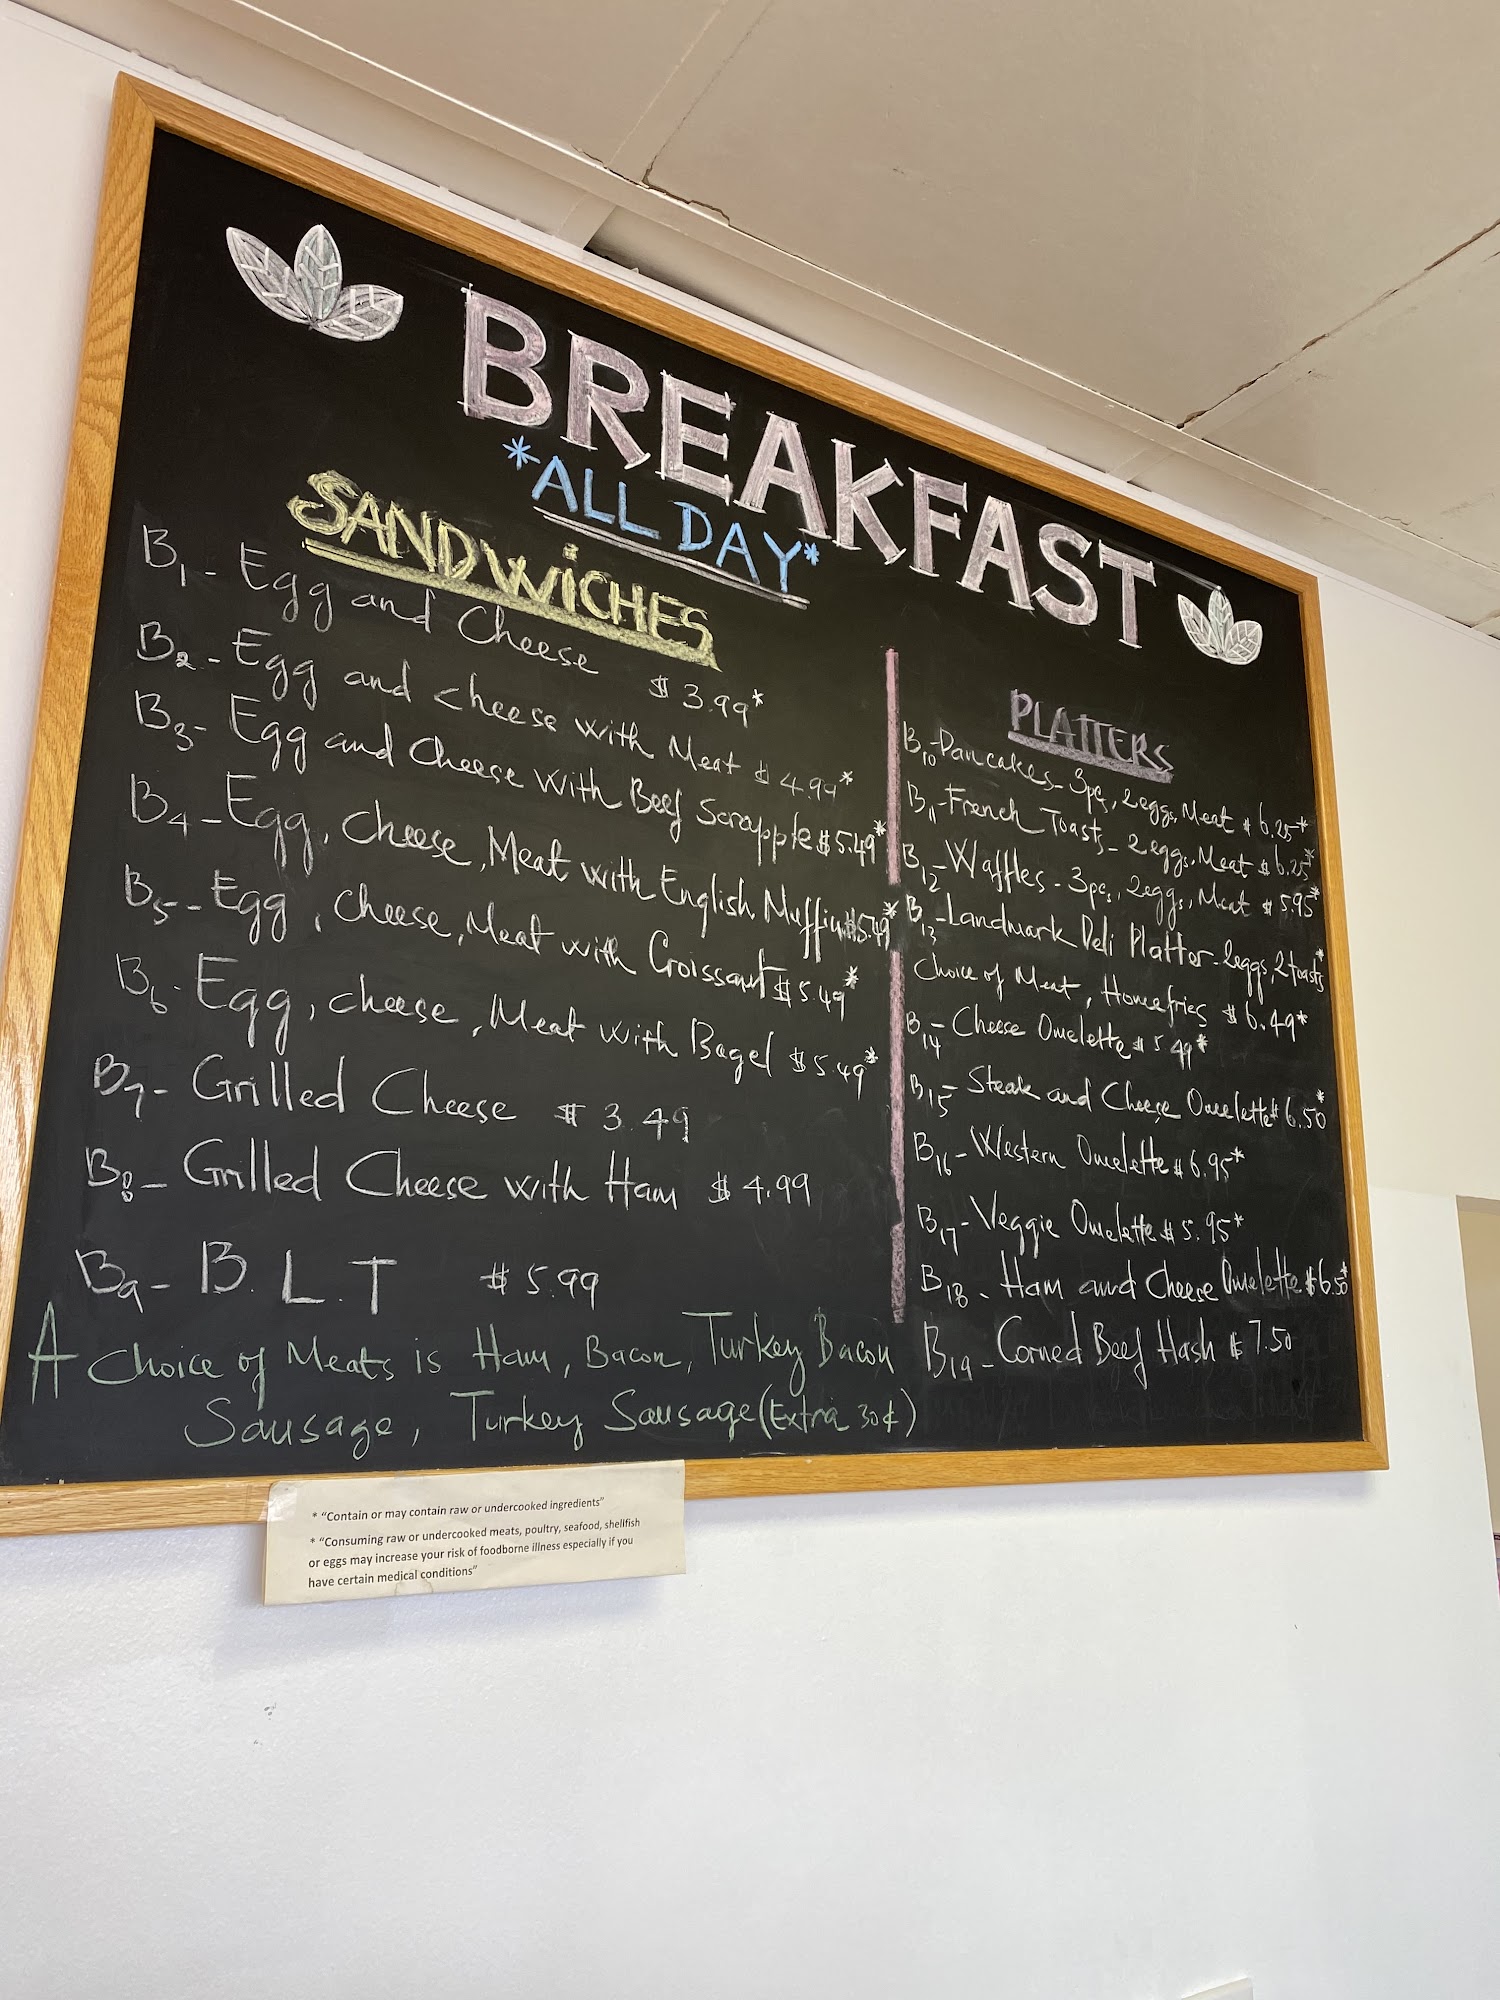 BREAKFAST
*ALL DAY*
SANDWiCHES
B1- Egg and Cheese $ 3.99*
B2- Egg and cheese with Meat $ 4.99*
B3- Egg and Cheese with Beef Scrapple $5.49*
B4- Egg, Cheese, Meat with English Muffin $5.49*
B5- Egg, Cheese, Meat with Croissant $5.49*
B6- Egg, cheese, Meat with Bagel $5.49*
B7- Grilled Cheese $ 3.49
B8- Grilled Cheese with Ham $ 4.99
B9- B.L.T $ 5.99
A Choice of Meats is Ham, Bacon, Turkey Bacon
Sausage, Turkey Sausage (Extra 30¢)
PLATTERS
B10-Pancakes-3pcs, 2eggs, Meat $ 6.25*
B11-French Toasts-2eggs, Meat $ 6.25*
B12-Waffles-3pcs, 2eggs, Meat $ 5.95*
B13-Landmark Deli Platter-2eggs, 2toasts*
Choice of Meat, Homefries $ 6.49*
B14- Cheese Omelette $ 5.49*
B15- Steak and Cheese Omelette $ 6.50*
B16-Western Omelette $ 6.95*
B17-Veggie Omelette $ 5.95*
B18- Ham and Cheese Omelette $6.50*
B19- Corned Beef Hash $ 7.50
* “Contain or may contain raw or undercooked ingredients”
* “Consuming raw or undercooked meats, poultry, seafood, shellfish
or eggs may increase your risk of foodborne illness especially if you
have certain medical conditions”